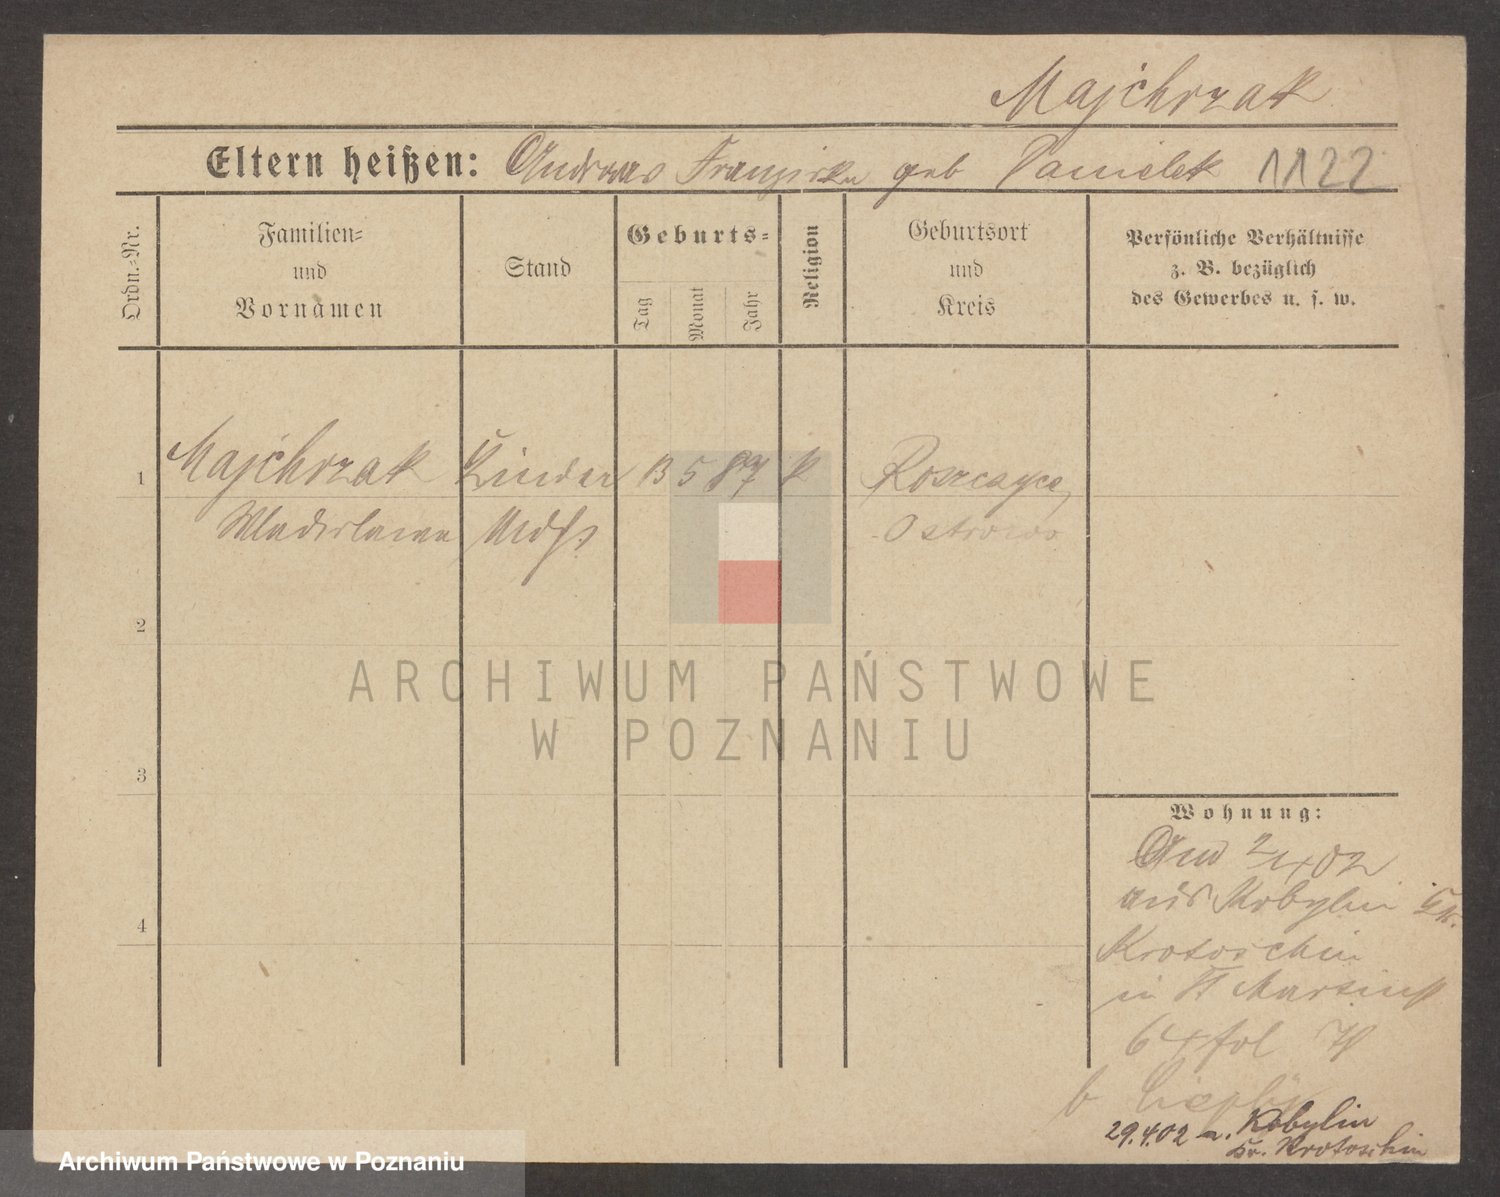 Majchrzak
Eltern heißen: Andreas Franziska geb Danielek 1122
Ordn.-Nr.
Familien-
und
Vornamen
Stand
Geburts-
Tag
Monat
Jahr
Religion
Geburtsort
und
Kreis
Persönliche Verhältnisse
z. B. bezüglich
des Gewerbes u. s. w.
1 Majchrzak Kinder 13 5 87 k
Wladislawa Mdch
Ostrowo
2
3
4
ARCHIWUM PAŃSTWOWE
W POZNANIU
Wohnung:
02
aus Kobylin Kr.
Krotoschin
in St Martinst
64
29.4.02 n. Kobylin
Kr. Krotoschin
Archiwum Państwowe w Poznaniu